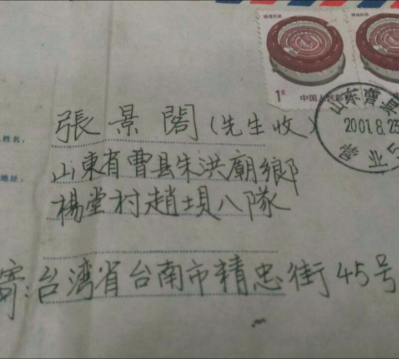 1元
中国人民邮政
2001.8.23
姓名，
張景閣（先生收）
地址，
山東省曹县朱洪廟鄉
楊堂村趙垻八隊
寄：台湾省台南市精忠街45号